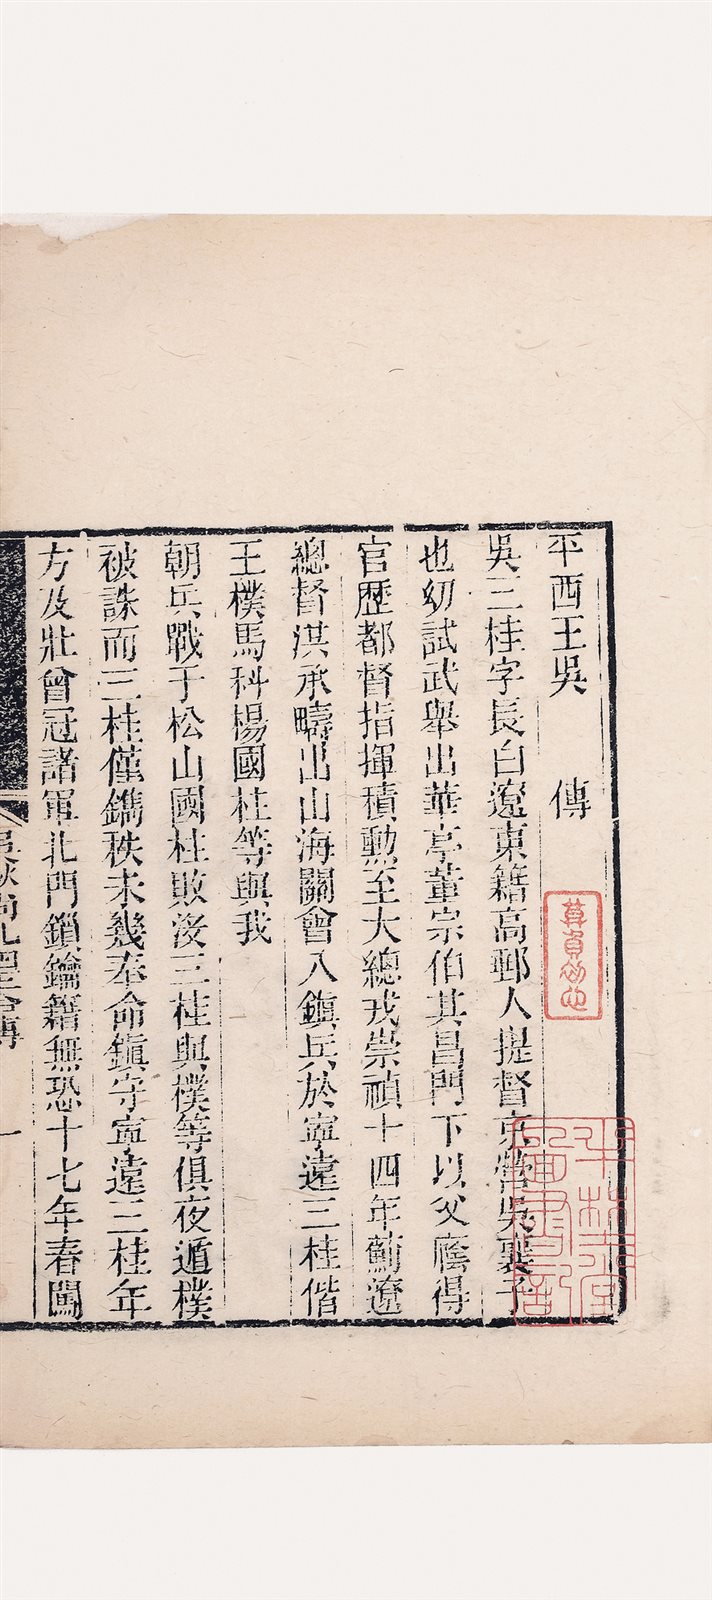 平西王吳　傳
吳三桂字長白遼東籍高郵人提督京營吳襄子
也幼試武舉出華亭董宗伯其昌門下以父廕得
官歷都督指揮積勲至大總戎崇禎十四年薊遼
總督洪承疇出山海關會八鎮兵於寧遠三桂偕
王樸馬科楊國柱等與我
朝兵戰于松山國柱敗沒三桂與樸等俱夜遁樸
被誅而三桂僅鐫秩未幾奉命鎮守寧遠三桂年
方及壯曾冠諸軍北門鎖鑰籍無恐十七年春闖
吳耿尚孔四王合傳
一